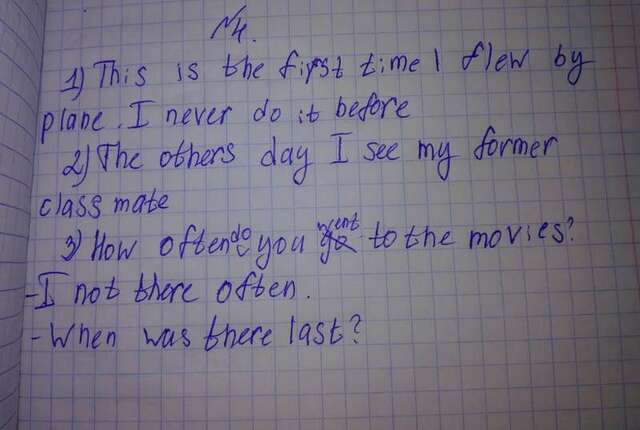 №4.
1) This is the first time I flew by
plane. I never do it before
2) The others day I see my former
class mate
3) How often do you went to the movies?
- I not there often.
- When was there last?